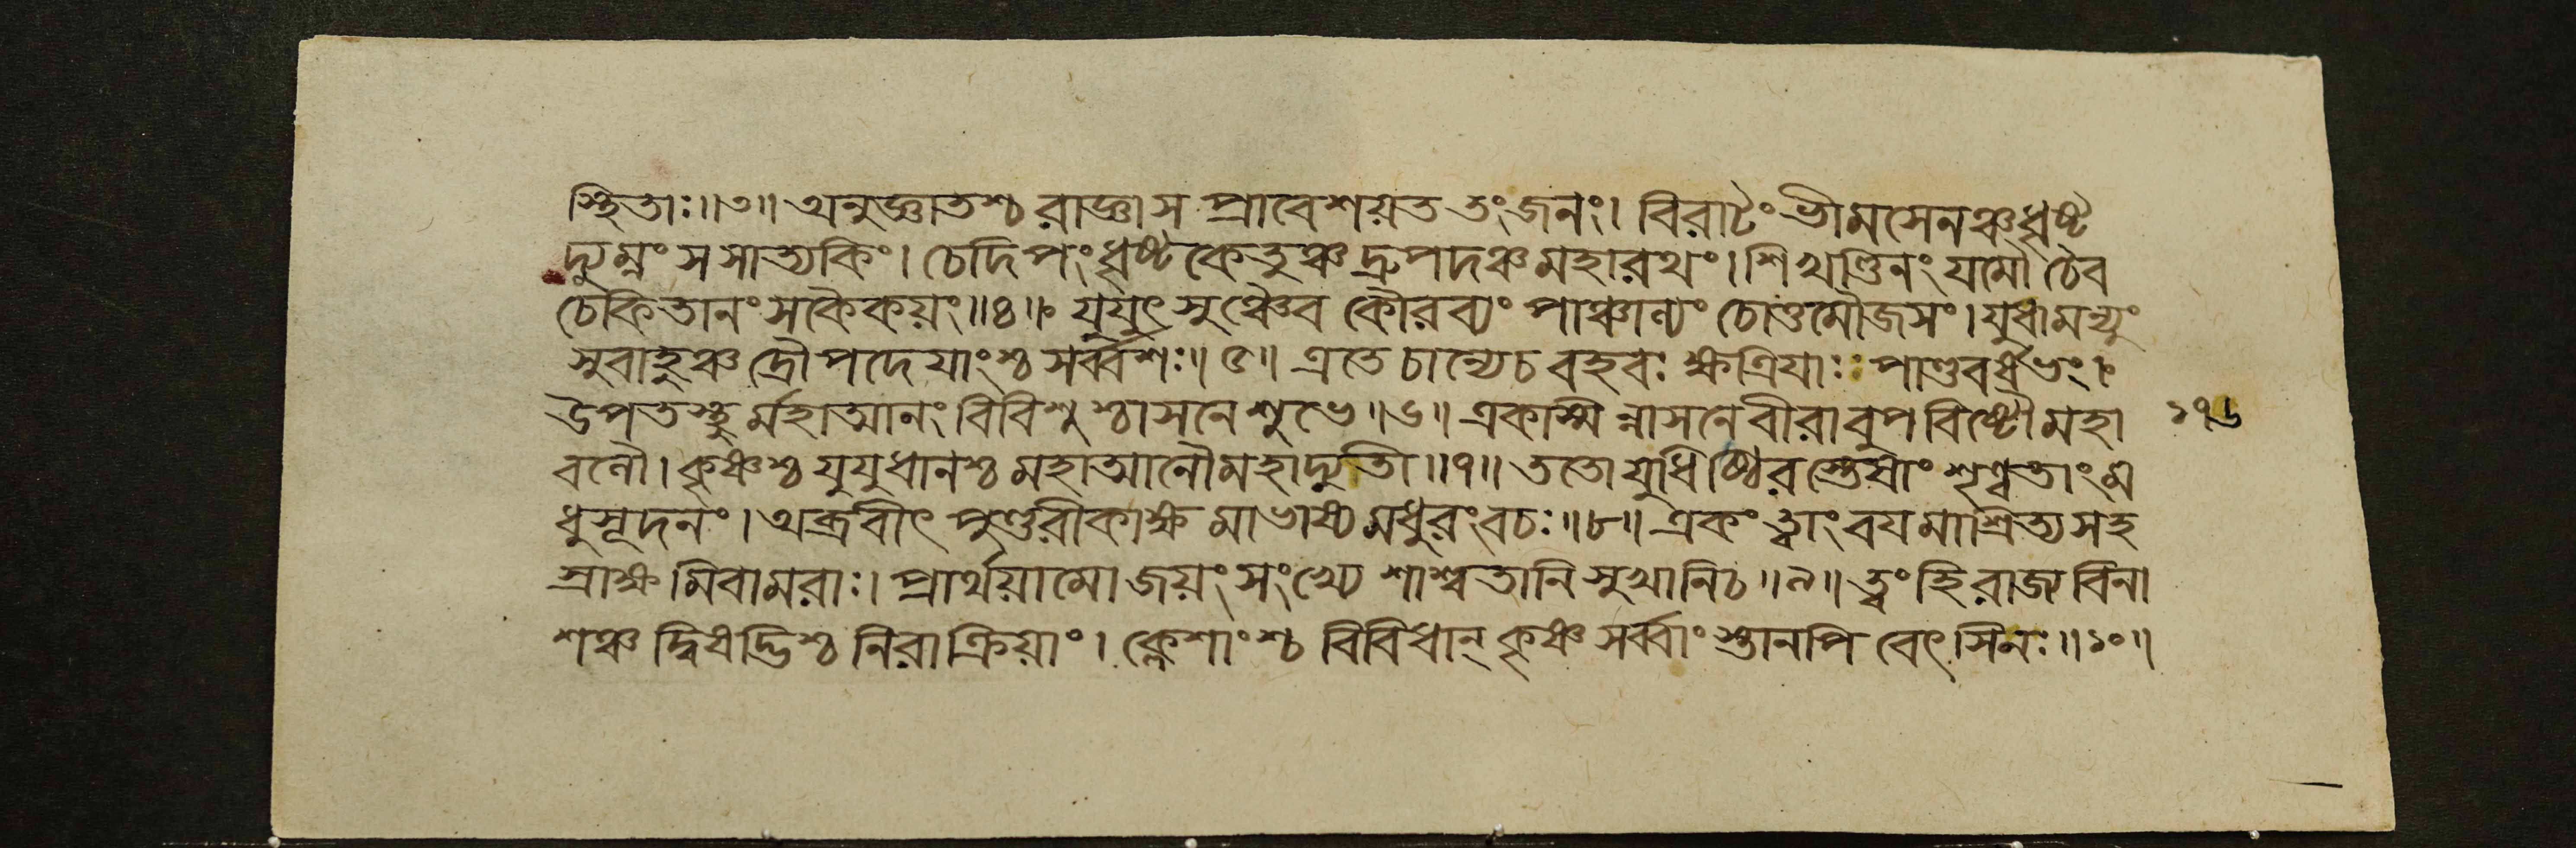 স্থিতাঃ॥৩॥ অনুজ্ঞাতশ্চ রাজ্ঞা স প্রাবেশয়ত তং জনং। বিরাটং ভীমসেনঞ্চ ধৃষ্ট
দ্যুম্নং সসাত্যকিং। চেদিপং ধৃষ্টকেতুঞ্চ দ্রুপদঞ্চ মহারথং। শিখণ্ডিনং যমৌ চৈব
চেকিতানং সকৈকয়ং॥৪॥ যুযুৎসুঞ্চৈব কৌরব্যং পাঞ্চাল্যং চোত্তমৌজসং। যুধামন্যুং
সুবাহুঞ্চ দ্রৌপদেয়াংশ্চ সর্ব্বশঃ॥৫॥ এতে চান্যে চ বহবঃ ক্ষত্রিয়াঃ পাণ্ডবর্ষভং।
উপতস্থুর্মহাত্মানং বিবিশুশ্চাসনে শুভে॥৬॥ একস্মিন্নাসনে বীরাবুপবিষ্টৌ মহা
বলৌ। কৃষ্ণশ্চ যুযুধানশ্চ মহাত্মানৌ মহাদ্যুতী॥৭॥ ততো যুধিষ্ঠিরস্তেষাং শৃণ্বতাং ম
ধুসূদনং। অব্রবীৎ পুণ্ডরীকাক্ষমাভাষ্য মধুরং বচঃ॥৮॥ একং ত্বাং বয়মাশ্রিত্য সহ
স্রাক্ষমিবামরাঃ। প্রার্থয়ামো জয়ং সংখ্যে শাশ্বতানি সুখানি চ॥৯॥ ত্বং হি রাজ্যবিনা
শঞ্চ দ্বিষদ্ভিশ্চ নিরাক্রিয়াং। ক্লেশাংশ্চ বিবিধান্ কৃষ্ণ সর্ব্বাংস্তানপি বেৎসি নঃ॥১০॥
১৭৬